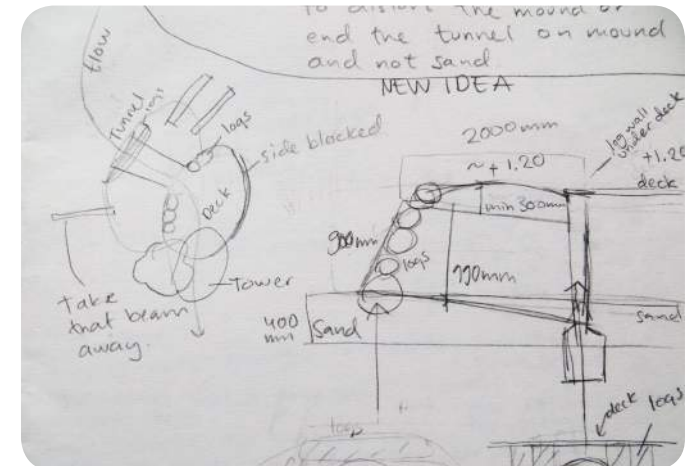 to distort the mound or
end the tunnel on mound
and not sand
NEW IDEA
flow
Tunnel
logs
logs
side blocked
Deck
Tower
Take
that beam
away.
2000mm
~+1.20
log wall
under deck
+1.20
deck
min 300mm
900mm
logs
990mm
400
mm
Sand
sand
logs
deck
logs